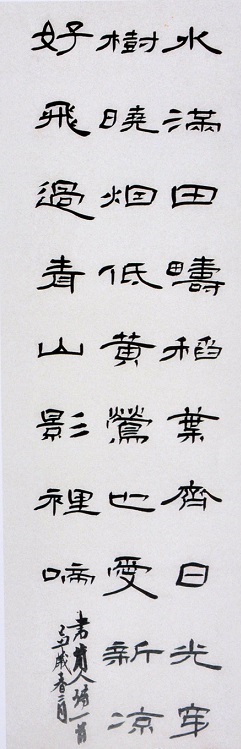 水滿田疇稻葉齊日光穿
樹曉烟低黃鶯也愛新涼
好飛過青山影裡啼
書前人詩一首
丑歲春二月